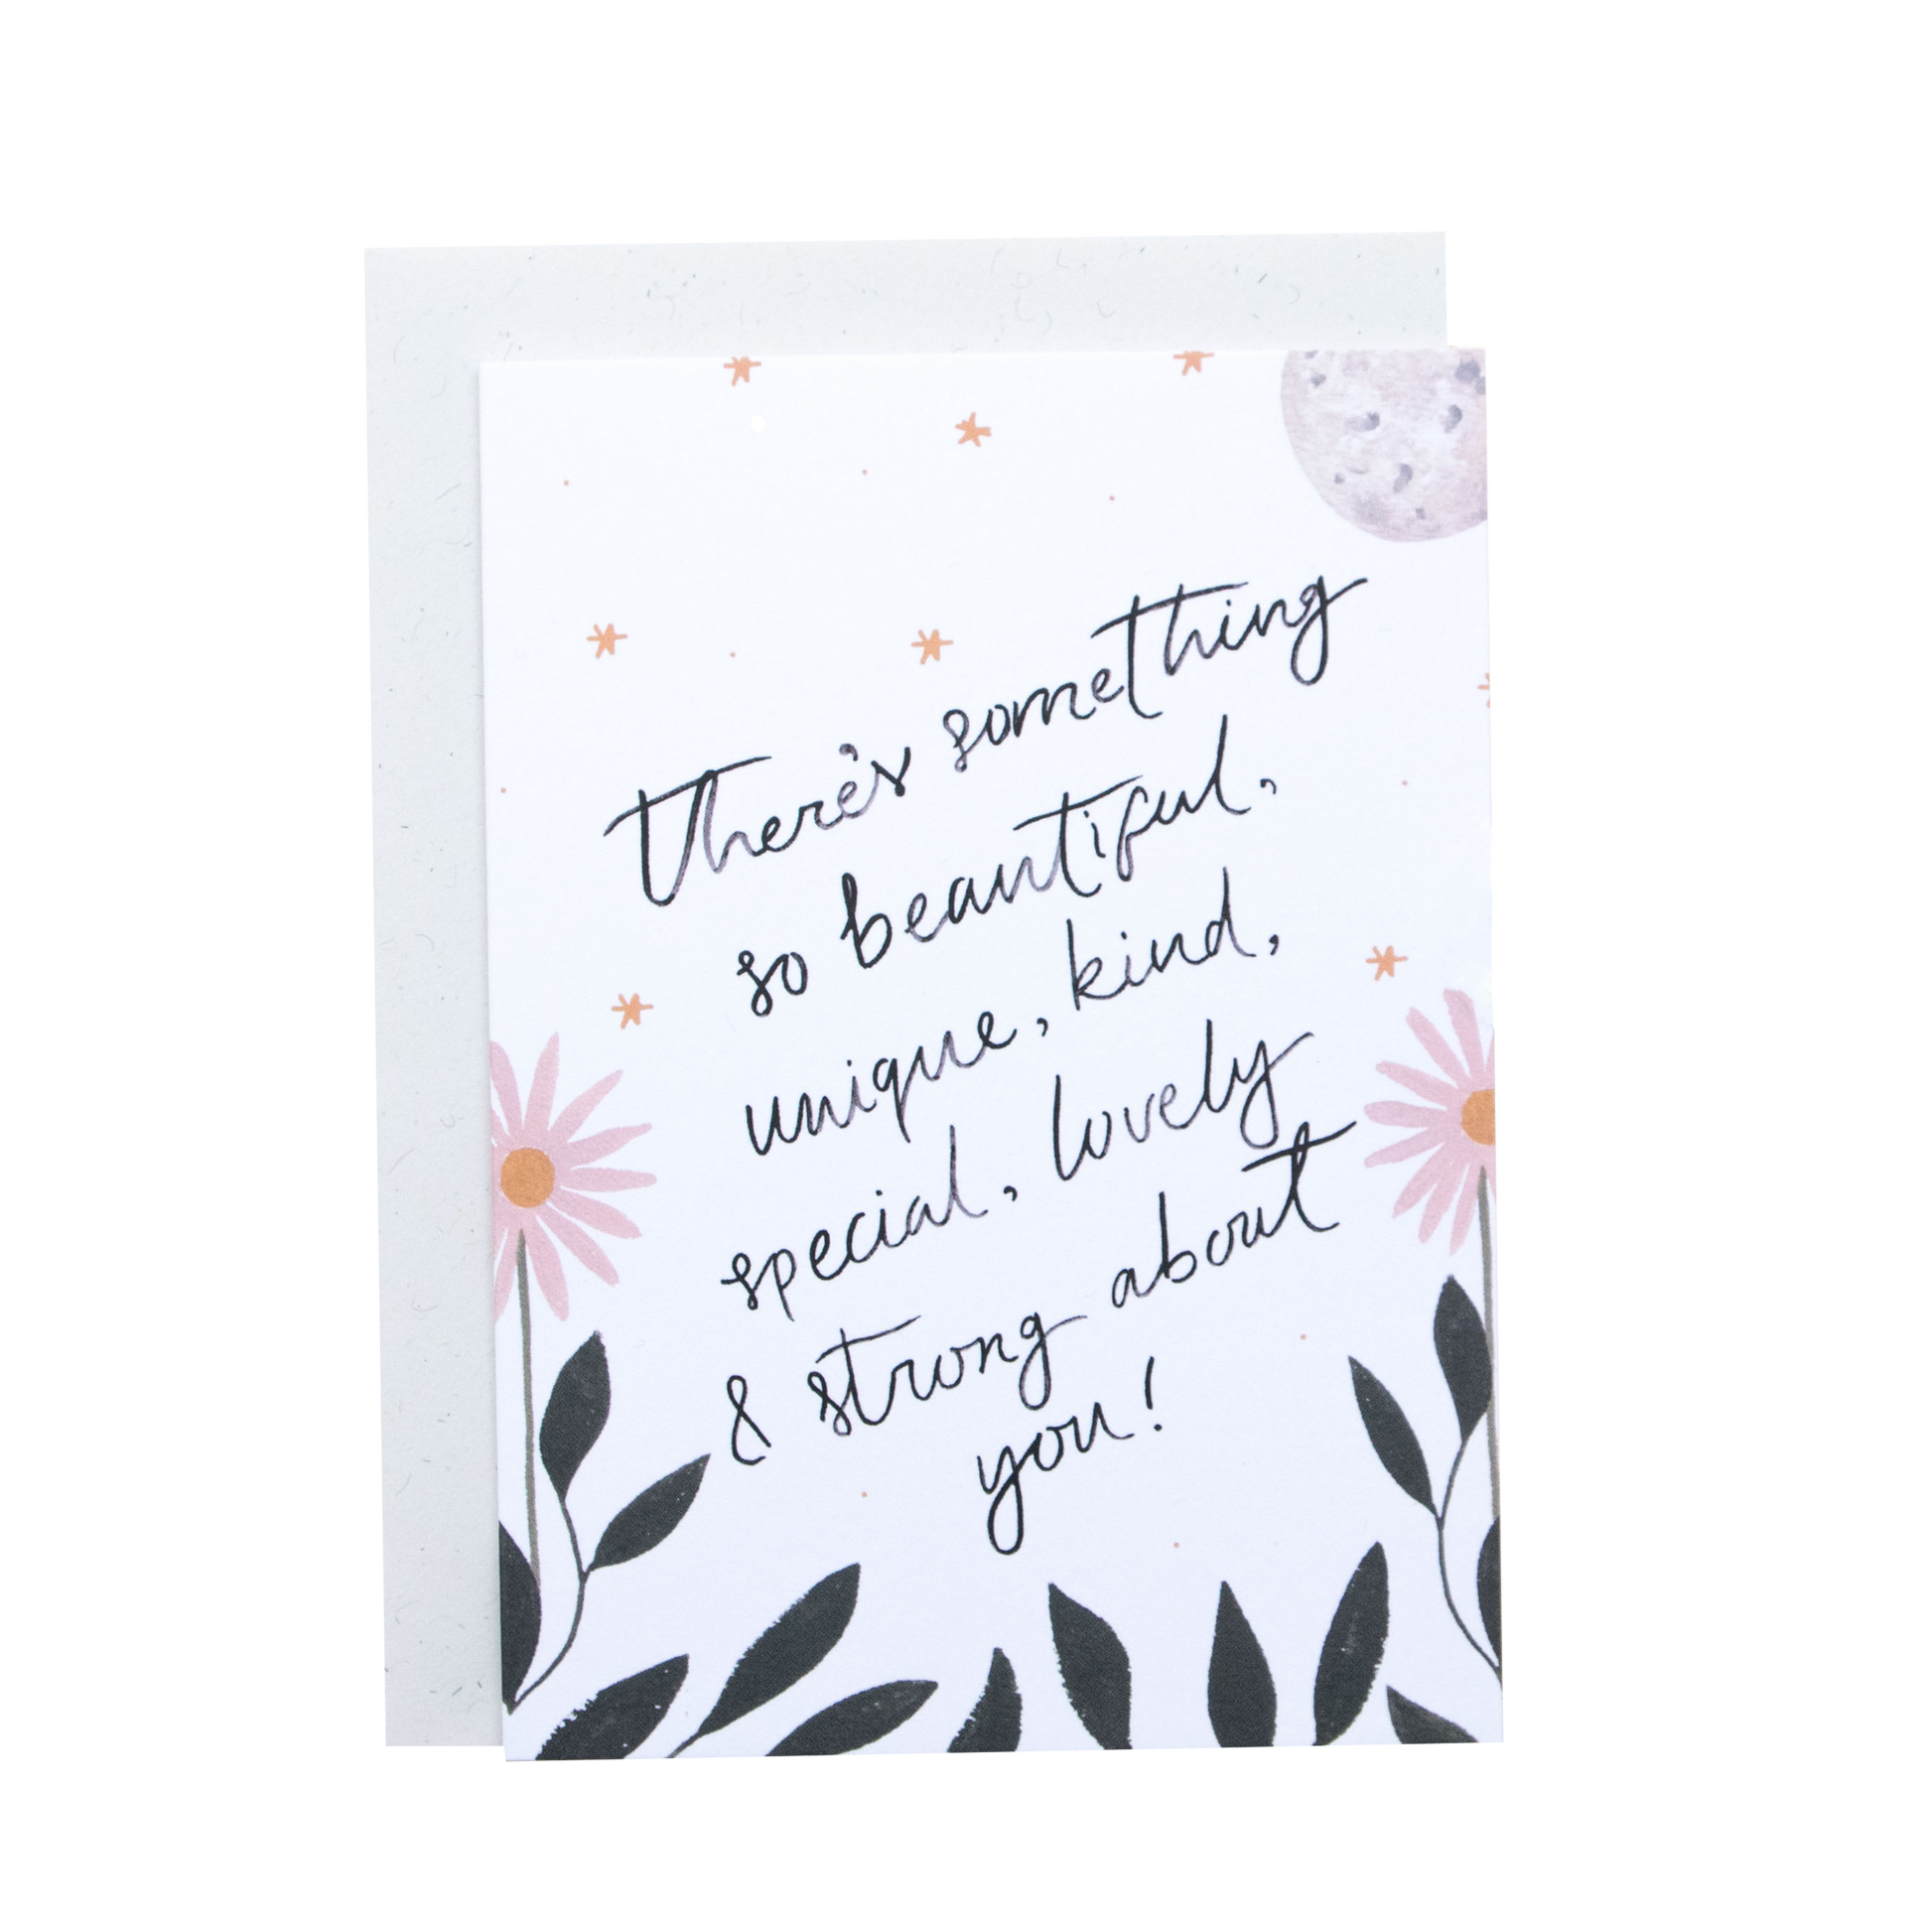 There's something
so beautiful,
unique, kind,
special, lovely
& strong about
you!